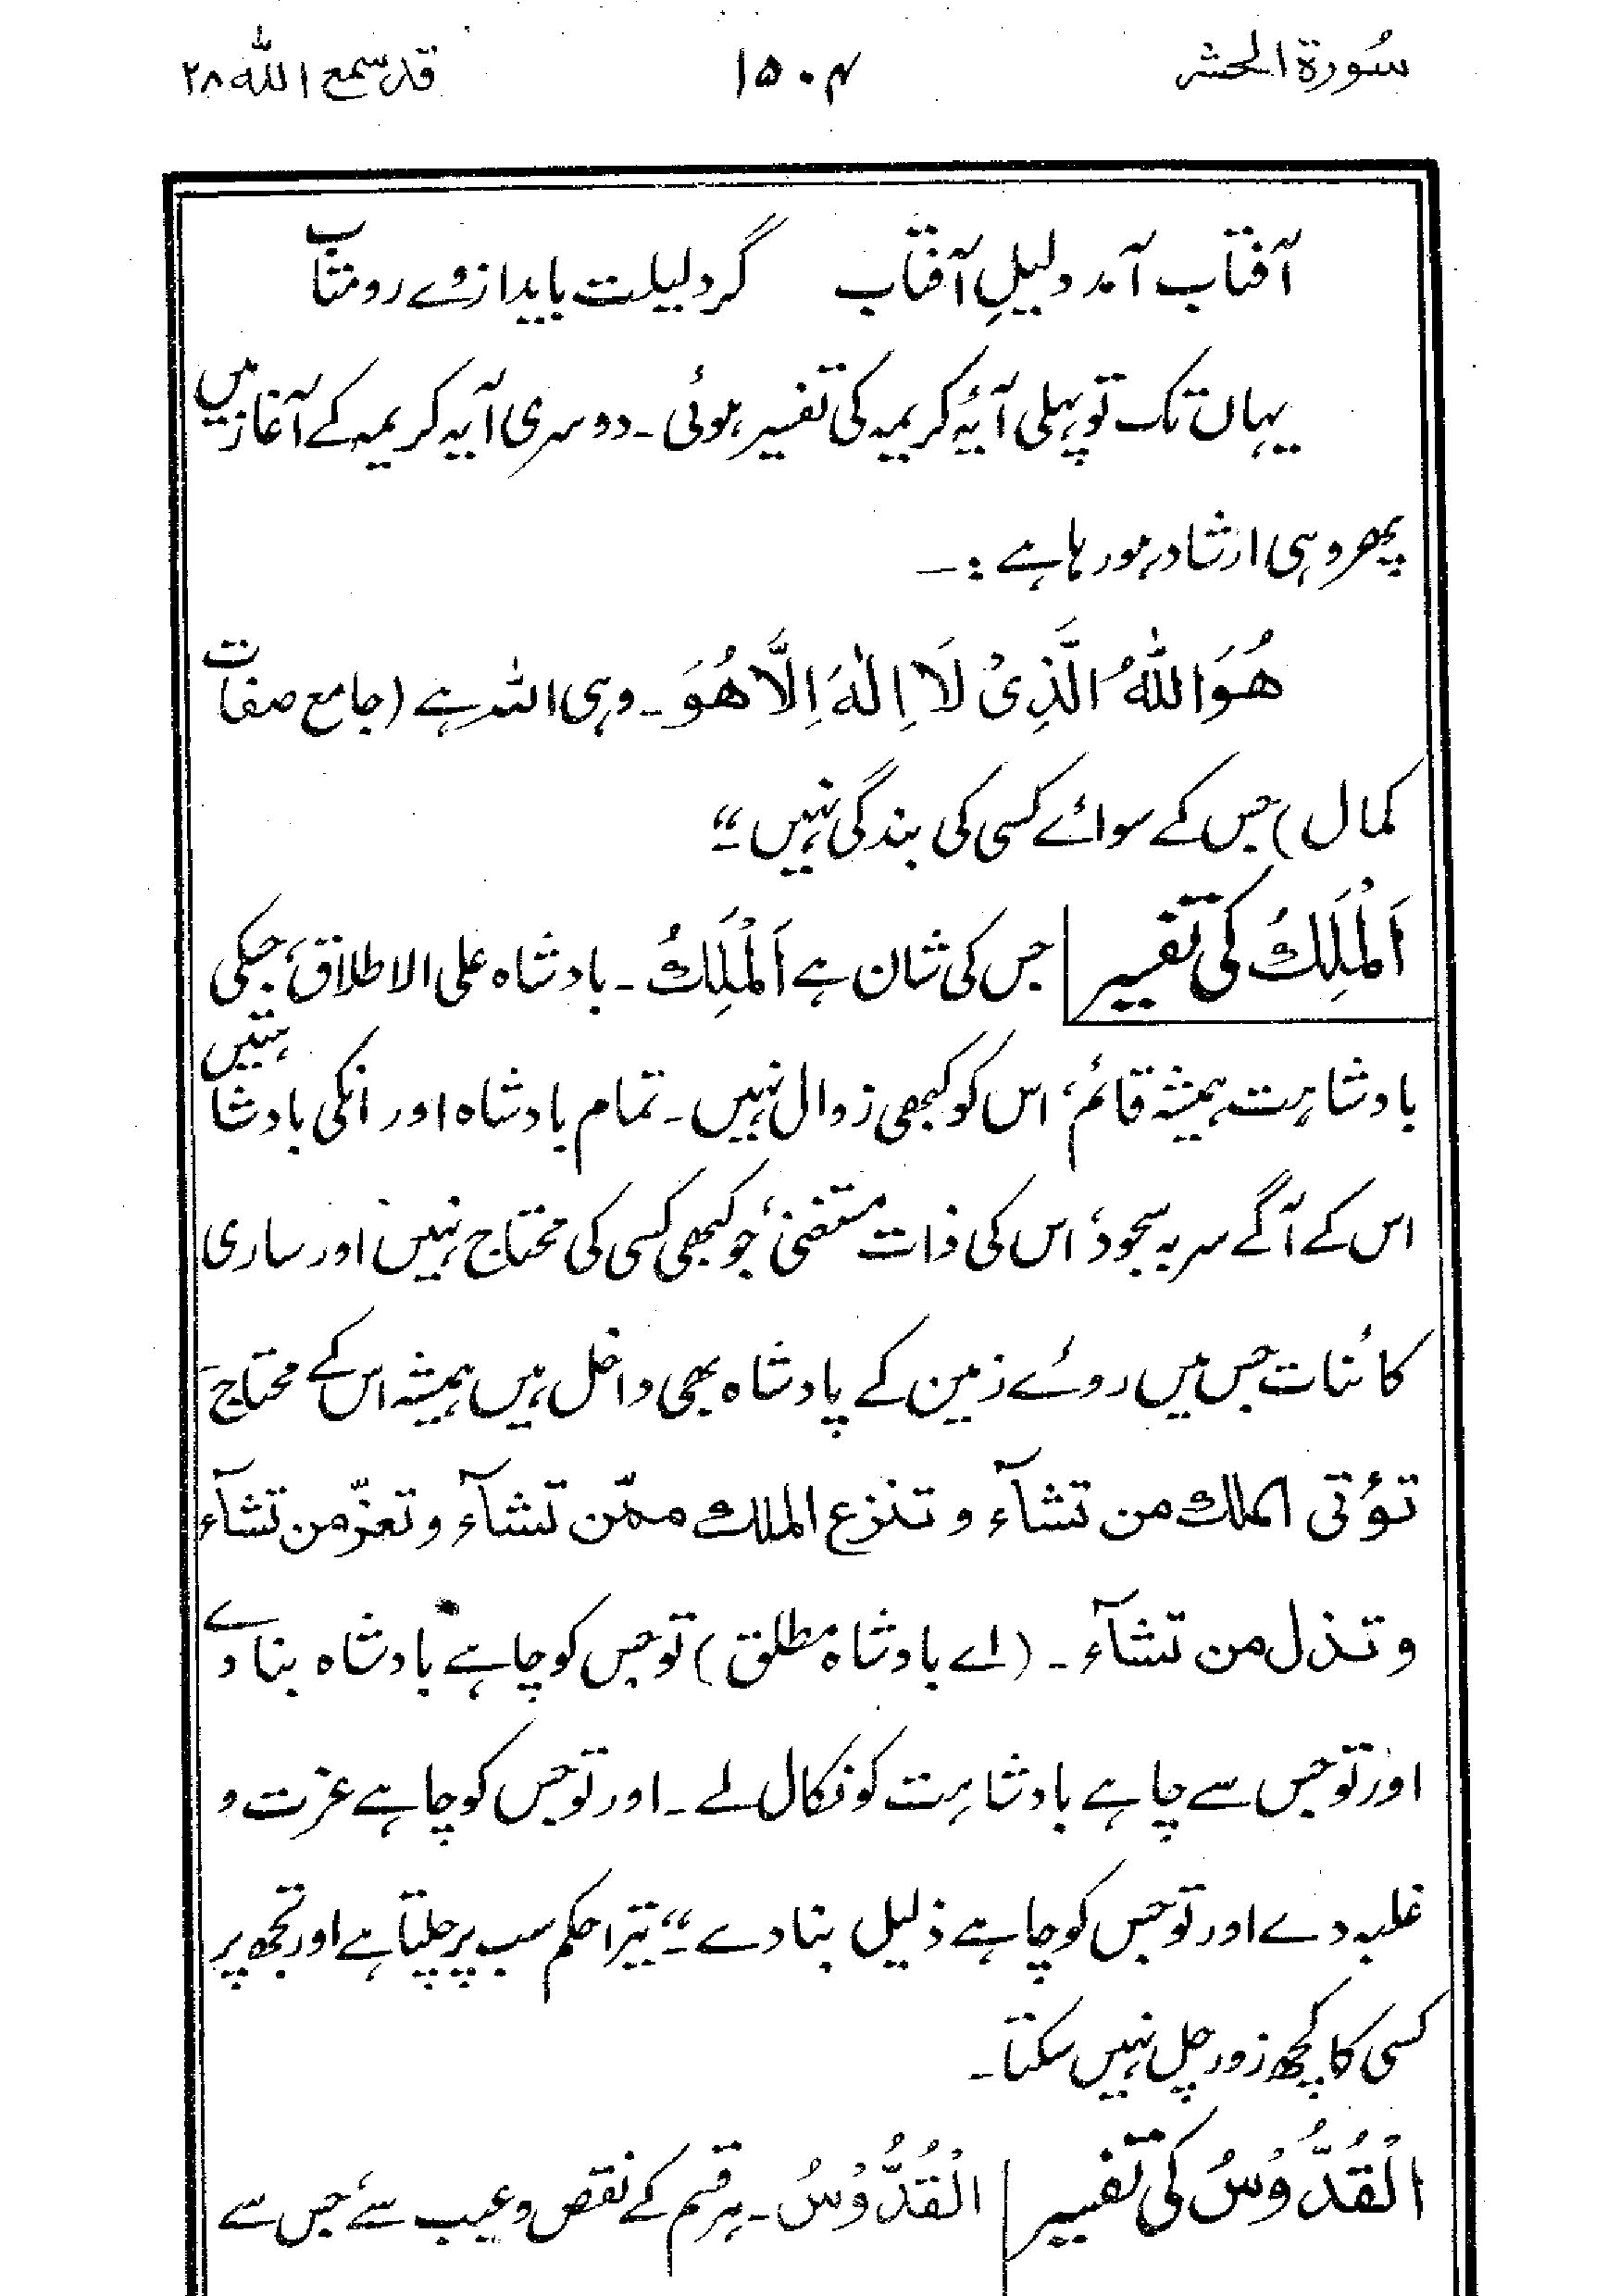 سُورة الحشر ۱۵۰۴ قد سمع اللہ ۲۸
آفتاب آمد دلیلِ آفتاب گر دلیلت باید از وے رو متاب
یہاں تک تو پہلی آیۂ کریمہ کی تفسیر ہوئی۔ دوسری آیہ کریمہ کے آغاز میں
پھر وہی ارشاد ہو رہا ہے :۔
هُوَ اللّٰهُ الَّذِیْ لَا اِلٰهَ اِلَّا هُوَ۔ وہی اللہ ہے (جامع صفات
کمال) جس کے سوائے کسی کی بندگی نہیں۔“
اَلْمَلِكُ کی تفسیر جس کی شان ہے اَلْمَلِكُ۔ بادشاہ علی الاطلاق، جسکی
بادشاہت ہمیشہ قائم، اس کو کبھی زوال نہیں۔ تمام بادشاہ اور انکی بادشاہتیں
اس کے آگے سر بہ سجود، اس کی ذات مستغنی، جو کبھی کسی کی محتاج نہیں، اور ساری
کائنات جس میں روئے زمین کے پادشاہ بھی داخل ہیں ہمیشہ اس کے محتاج۔
تؤتی الملك من تشآء و تنزع الملك ممّن تشآء و تعزّ من تشآء
و تذل من تشآء۔ (اے بادشاہ مطلق) تو جس کو چاہے بادشاہ بنا دے
اور تو جس سے چاہے بادشاہت کو نکال لے۔ اور تو جس کو چاہے عزت و
غلبہ دے اور تو جس کو چاہے ذلیل بنا دے۔“ تیرا حکم سب پر چلتا ہے اور تجھ پر
کسی کا کچھ زور چل نہیں سکتا۔
الْقُدُّوْسُ کی تفسیر الْقُدُّوْسُ۔ ہر قسم کے نقص و عیب سے، جس سے